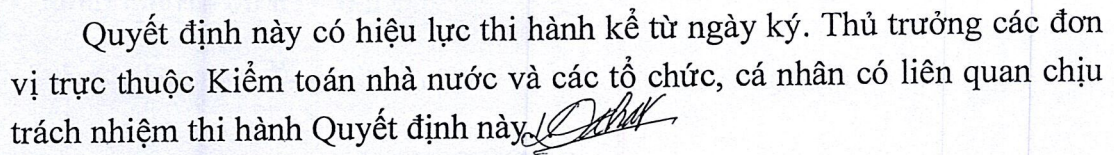 Quyết định này có hiệu lực thi hành kể từ ngày ký. Thủ trưởng các đơn
vị trực thuộc Kiểm toán nhà nước và các tổ chức, cá nhân có liên quan chịu
trách nhiệm thi hành Quyết định này